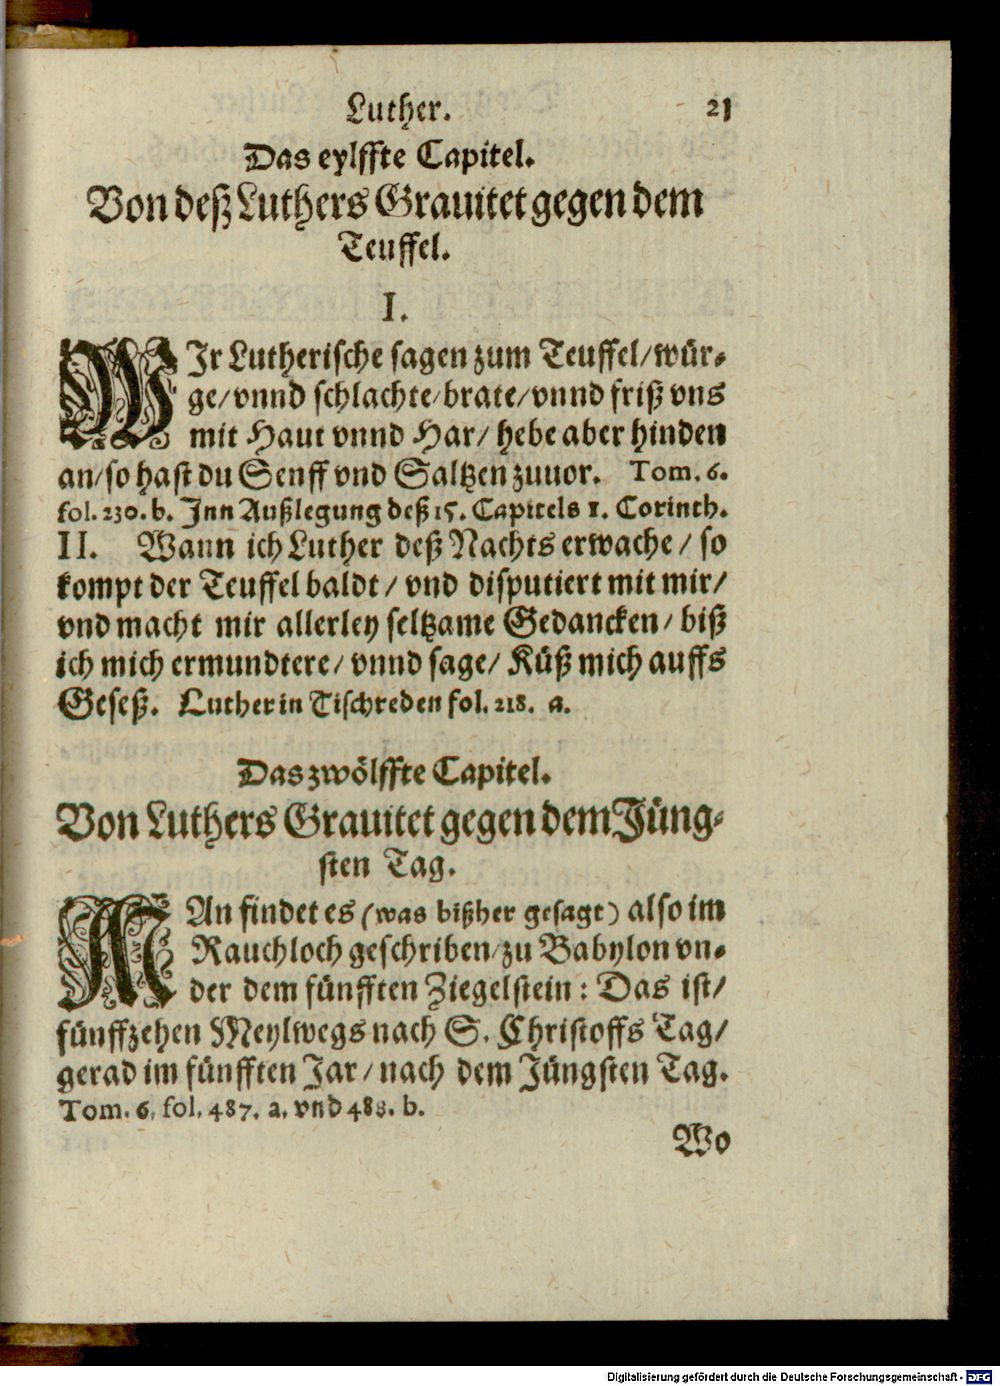 Luther. 21
Das eylffte Capitel.
Von deß Luthers Grauitet gegen dem
Teuffel.
I.
WJr Lutherische sagen zum Teuffel/ wür-
ge/ vnnd schlachte/ brate/ vnnd friß vns
mit Haut vnnd Har/ hebe aber hinden
an/ so hast du Senff vnd Saltzen zuuor. Tom. 6.
fol. 230. b. Jnn Außlegung deß 15. Capitels 1. Corinth.
II. Wann ich Luther deß Nachts erwache/ so
kompt der Teuffel baldt/ vnd disputiert mit mir/
vnd macht mir allerley seltzame Gedancken/ biß
ich mich ermundtere/ vnnd sage/ Küß mich auffs
Geseß. Luther in Tischreden fol. 218. a.
Das zwölffte Capitel.
Von Luthers Grauitet gegen dem Jüng-
sten Tag.
MAn findet es (was bißher gesagt) also im
Rauchloch geschriben/ zu Babylon vn-
der dem fünfften Ziegelstein: Das ist/
fünffzehen Meylwegs nach S. Christoffs Tag/
gerad im fünfften Jar/ nach dem Jüngsten Tag.
Tom. 6, fol. 487. a. vnd 488. b.
Wo
Digitalisierung gefördert durch die Deutsche Forschungsgemeinschaft - DFG